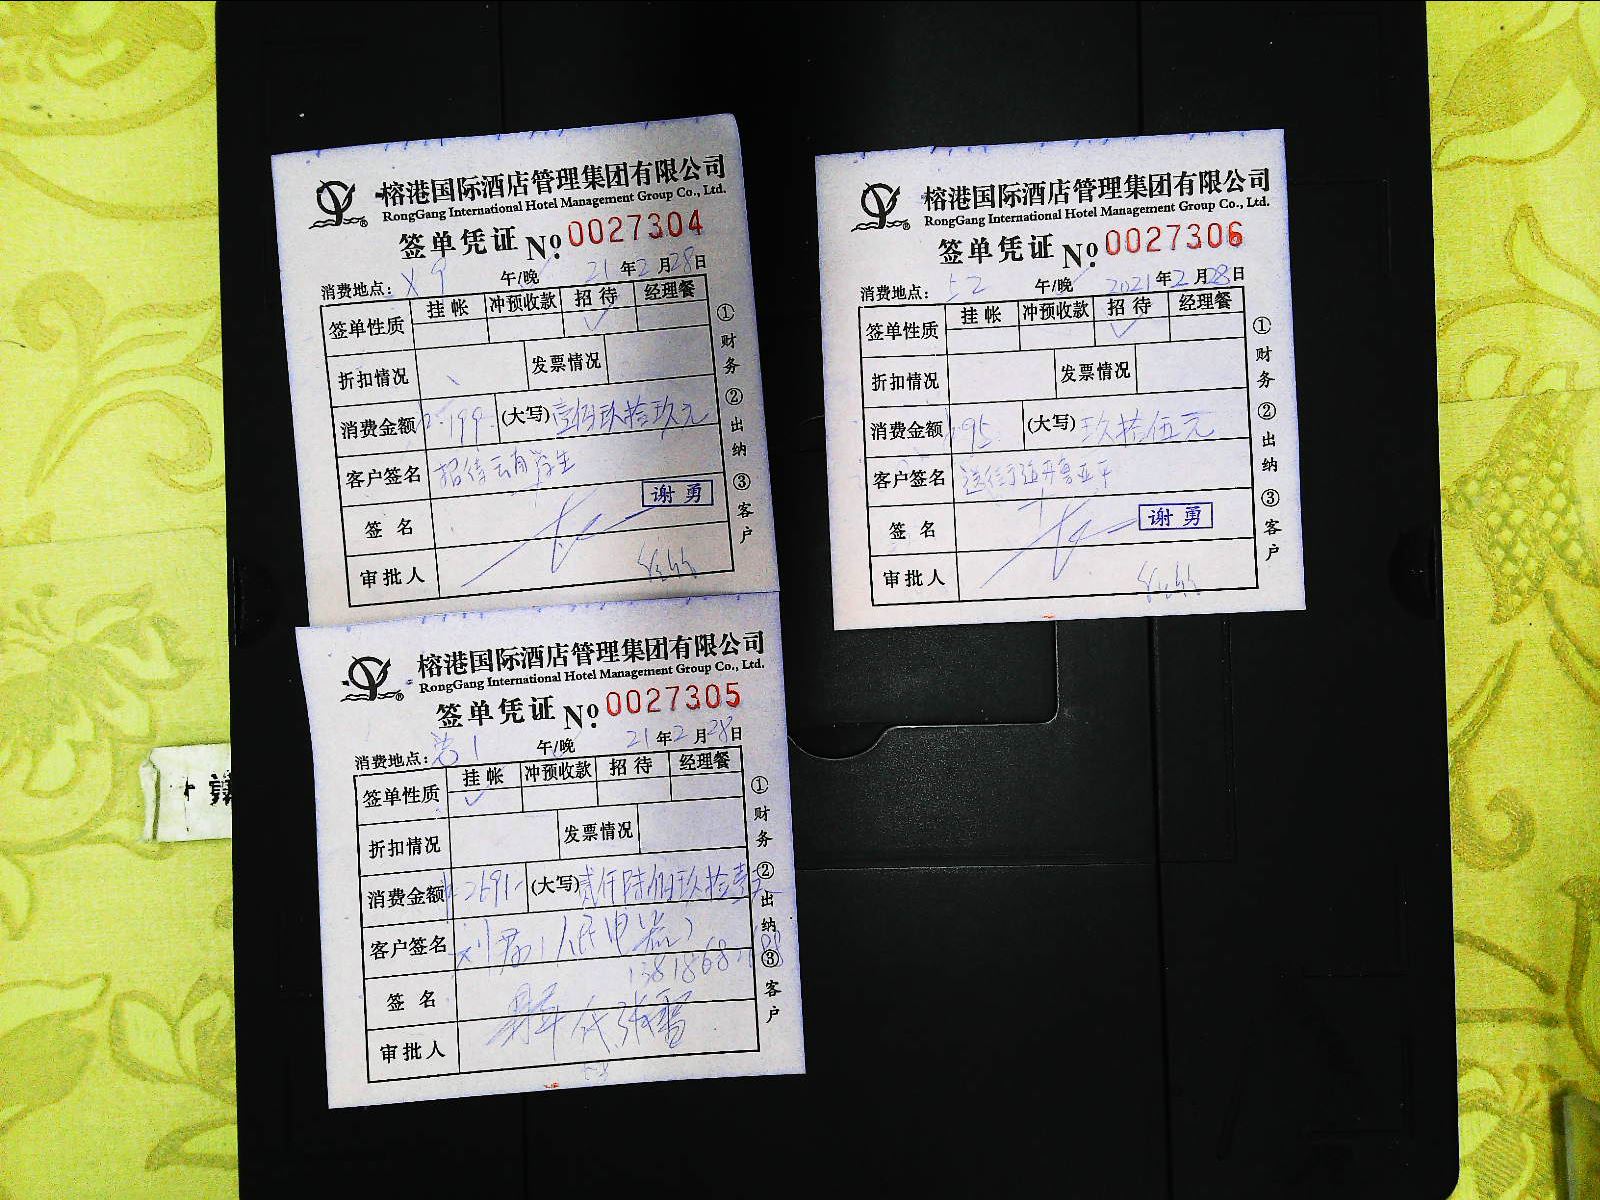 榕港国际酒店管理集团有限公司
RongGang International Hotel Management Group Co., Ltd.
签单凭证 No. 0027304
消费地点: 午/晚 21年2月28日
签单性质 挂帐 冲预收款 招待 经理餐
✓
折扣情况 发票情况
消费金额 199 (大写) 壹佰玖拾玖元
客户签名 招待 学生
签名 谢勇
审批人
①财务 ②出纳 ③客户
榕港国际酒店管理集团有限公司
RongGang International Hotel Management Group Co., Ltd.
签单凭证 No. 0027305
消费地点: 午/晚 21年2月28日
签单性质 挂帐 冲预收款 招待 经理餐
✓
折扣情况 发票情况
消费金额 2691- (大写) 贰仟陆佰玖拾壹元
客户签名 人民电器
签名
审批人
①财务 ②出纳 ③客户
榕港国际酒店管理集团有限公司
RongGang International Hotel Management Group Co., Ltd.
签单凭证 No. 0027306
消费地点: 午/晚 2021年2月28日
签单性质 挂帐 冲预收款 招待 经理餐
✓
折扣情况 发票情况
消费金额 95 (大写) 玖拾伍元
客户签名
签名 谢勇
审批人
①财务 ②出纳 ③客户